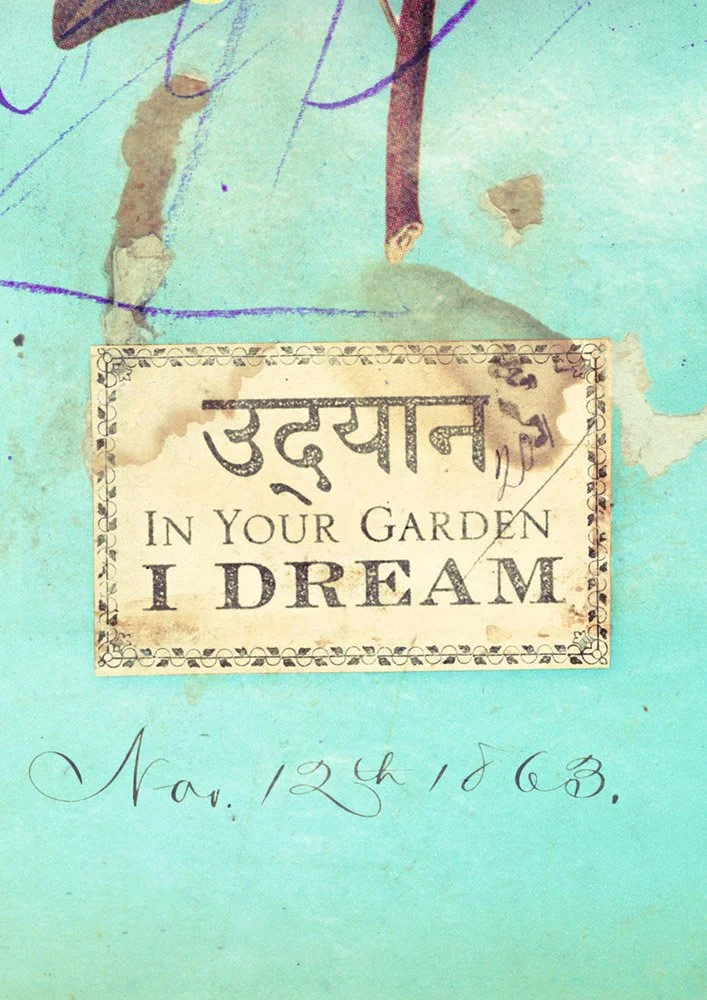 उद्यान
IN YOUR GARDEN
I DREAM
Nov. 12th 1863.